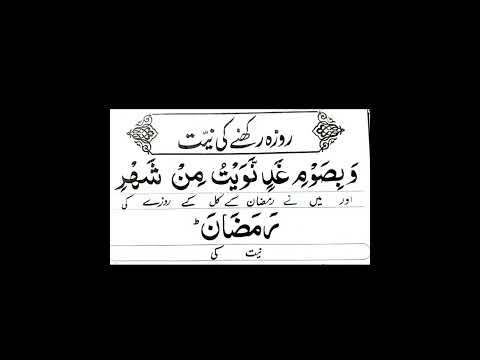 روزہ رکھنے کی نیّت
وَبِصَوْمِ غَدٍ نَّوَيْتُ مِنْ شَهْرِ
اور میں نے رمضان کے کل کے روزے کی
رَمَضَانَ ؕ
نیت کی